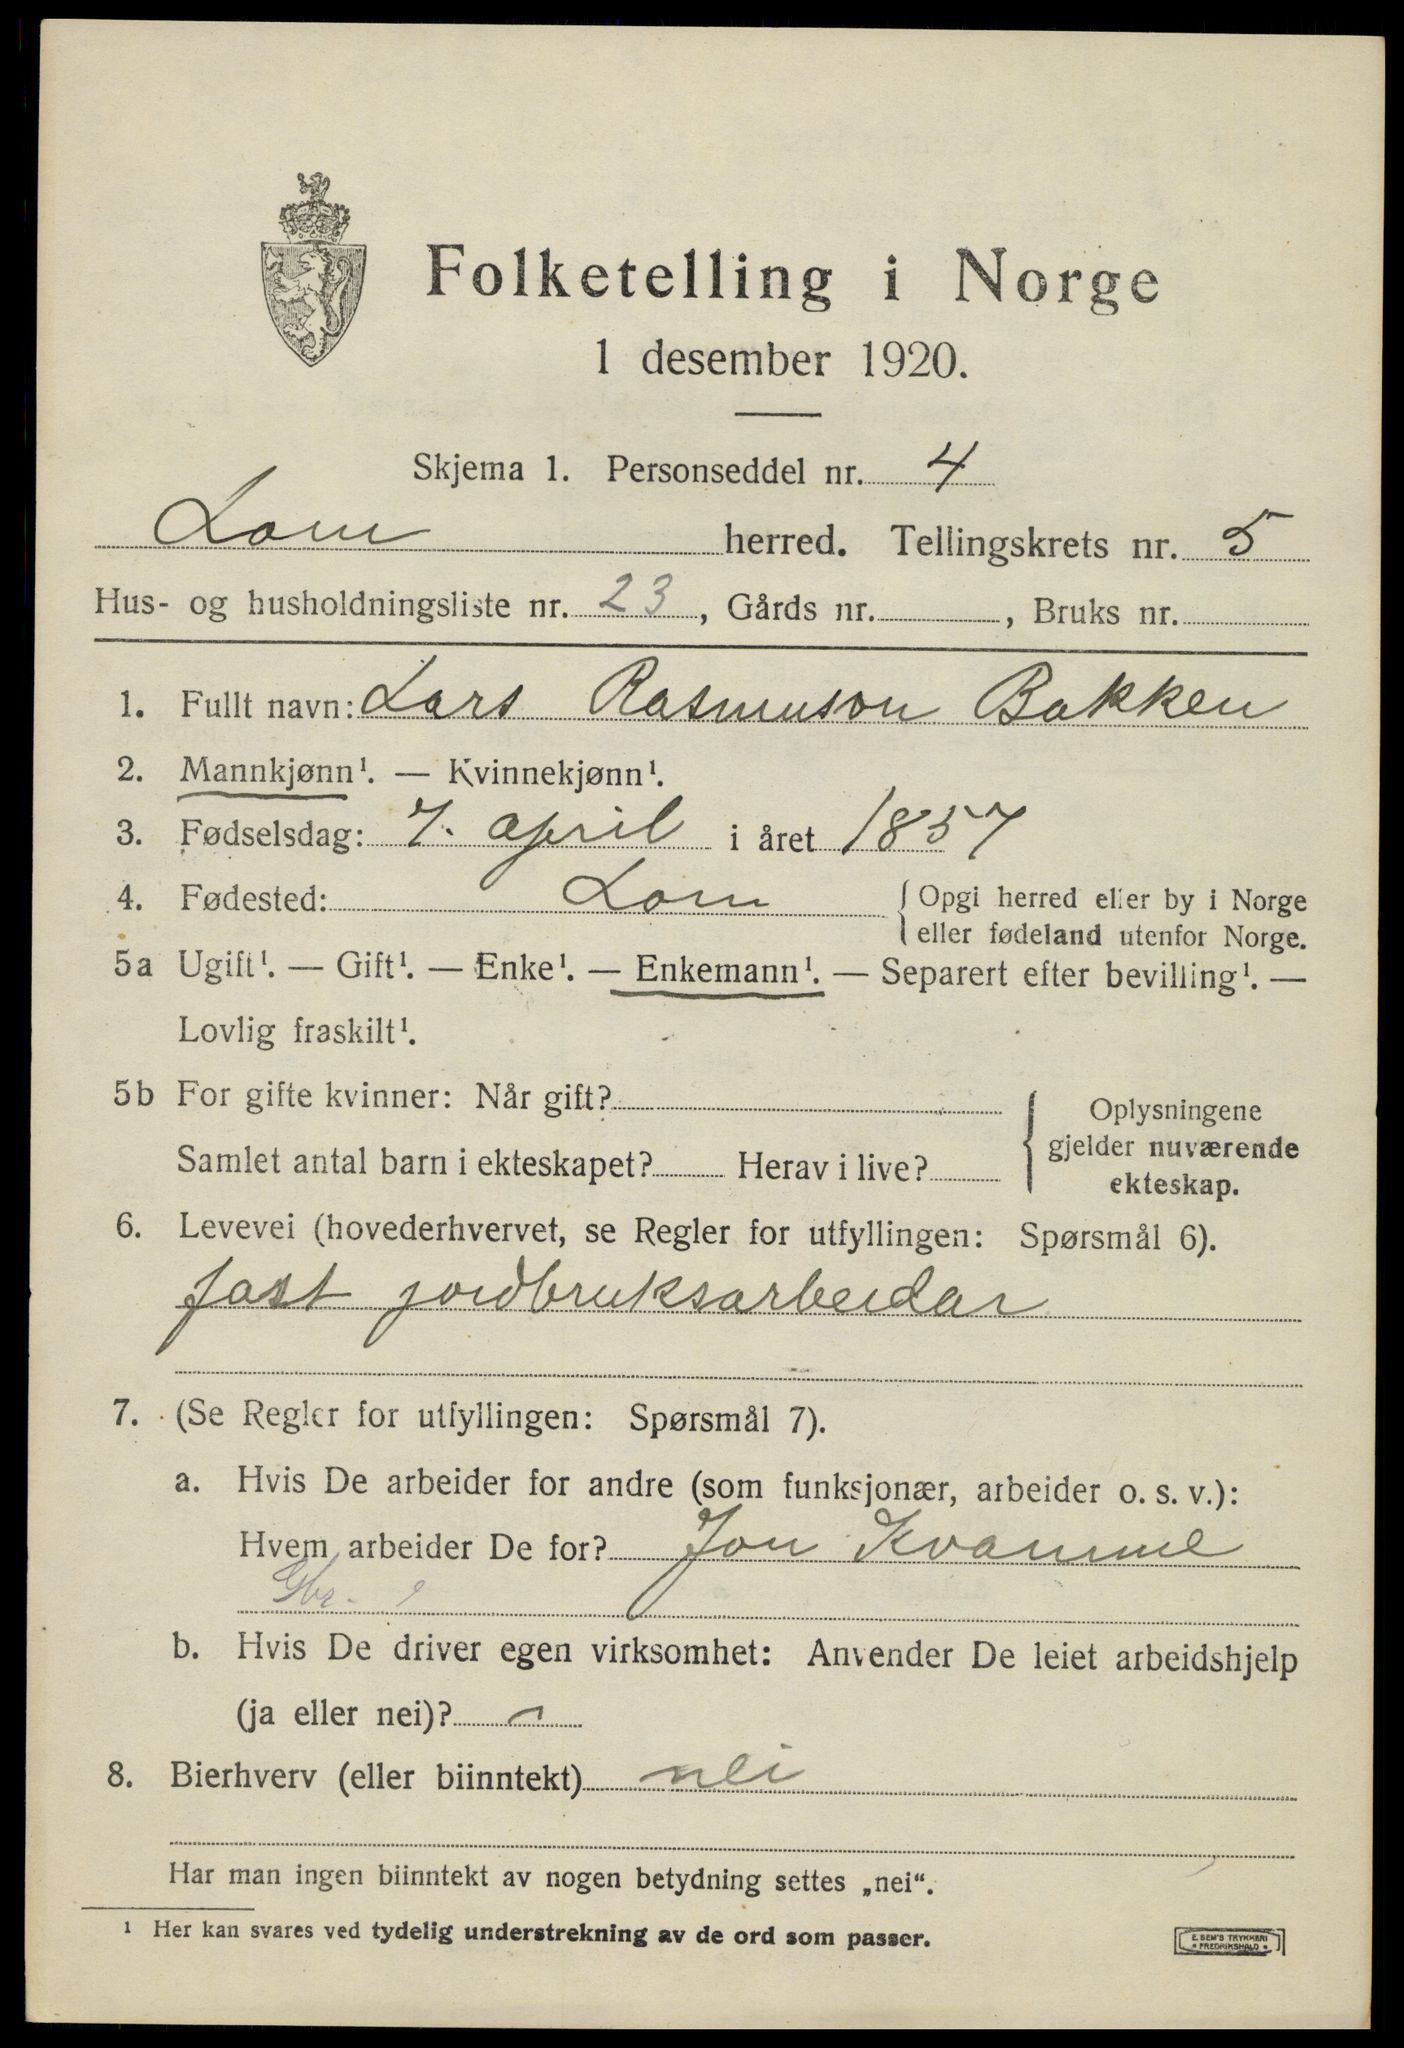 Folketelling i Norge
1 desember 1920.
Skjema 1. Personseddel nr. 4
Lom herred. Tellingskrets nr. 5
Hus- og husholdningsliste nr. 23, Gårds nr. , Bruks nr.
1. Fullt navn: Lars Rasmuson Bakken
2. Mannkjønn¹. — Kvinnekjønn¹.
3. Fødselsdag: 7. april i året 1857
4. Fødested: Lom { Opgi herred eller by i Norge
eller fødeland utenfor Norge.
5a Ugift¹. — Gift¹. — Enke¹. — Enkemann¹. — Separert efter bevilling¹. —
Lovlig fraskilt¹.
5b For gifte kvinner: Når gift?
Samlet antal barn i ekteskapet? Herav i live?
Oplysningene
gjelder nuværende
ekteskap.
6. Levevei (hovederhvervet, se Regler for utfyllingen: Spørsmål 6).
fast jordbruksarbeidar
7. (Se Regler for utfyllingen: Spørsmål 7).
a. Hvis De arbeider for andre (som funksjonær, arbeider o. s. v.):
Hvem arbeider De for? Jon Kvamme
Gbr.
b. Hvis De driver egen virksomhet: Anvender De leiet arbeidshjelp
(ja eller nei)?
8. Bierhverv (eller biinntekt) nei
Har man ingen biinntekt av nogen betydning settes „nei“.
¹ Her kan svares ved tydelig understrekning av de ord som passer.
E. SEM'S TRYKKERI
FREDRIKSHALD